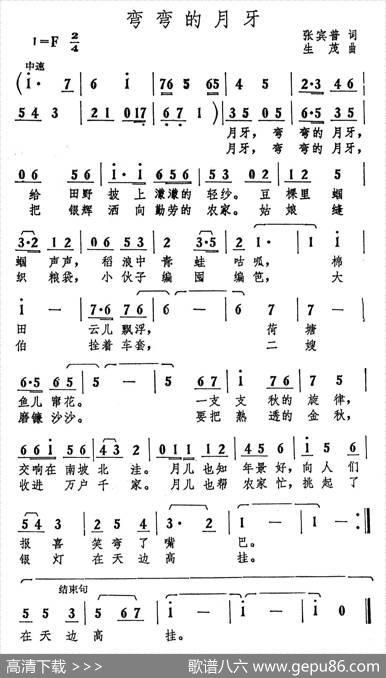 弯弯的月牙
1=F 2/4
张宾普 词
生茂 曲
中速
(i· 7 | 6 i | 176 5 65 | 4 5 | 2·3 4 6 |
5 4 3 | 2 1 0 17 | 6·7 1) | 3 5 0 5 | 6·5 3 5 |
月牙, 弯 弯的月牙,
月牙, 弯 弯的月牙,
给 田野 披上 濛濛的 轻纱。豆 棵里 蝈
把 银辉 洒向 勤劳的 农家。姑 娘 缝
蝈 声声, 稻 浪中 青 蛙 咕呱, 棉
织 粮袋, 小 伙子 编 囤 编笆, 大
i — | 7·6 7 6 | 2 — | 2 — | i 7 |
田 云儿 飘浮, 荷 塘
伯 拴着 车套, 二 嫂
6·5 6 5 | 5 — | 5 — | 3 5 i | 7 6 | 7 5 |
鱼儿 窜花。 一支 支 秋的 旋 律,
磨镰 沙沙。 要把 熟 透的 金 秋,
交响在 南坡 北 洼。月儿 也知 年景 好,向 人们
收进 万户 千 家。月儿 也帮 农家 忙,挑 起了
5 4 3 | 2 5 5 4 | 3· 2 | i — | i — :‖
报 喜 笑弯了 嘴 巴。
银 灯 在天边 高 挂。
结束句
5 5 3 | 5 67 | i — | i — | i — | i 0 ‖
在天边 高 挂。
高清下载 >>>
歌谱八六 www.gepu86.com